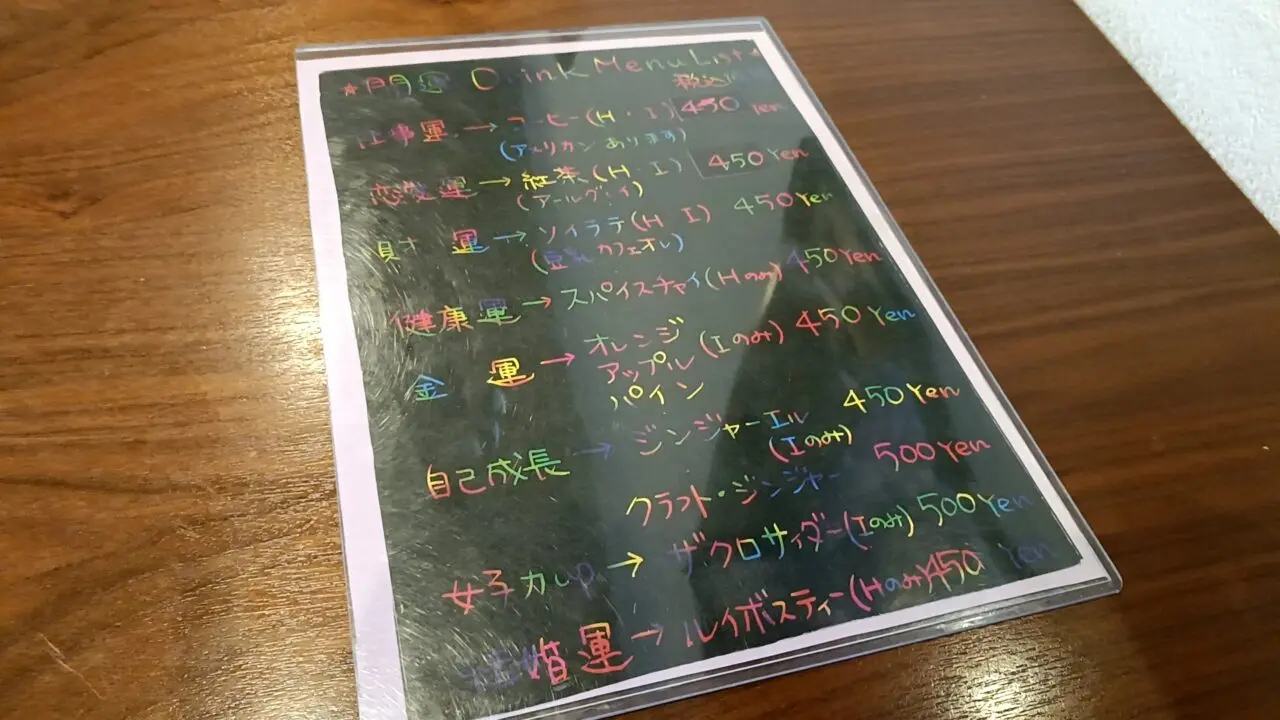 ★開運 Drink Menu List★
税込
仕事運→コーヒー(H・I) 450 Yen
(アメリカンあります)
恋愛運→紅茶(H・I) 450 Yen
(アールグレイ)
財運→ソイラテ(H I) 450 Yen
(豆乳カフェオレ)
健康運→スパイスチャイ(Hのみ) 450 Yen
金運→オレンジ
アップル(Iのみ) 450 Yen
パイン
自己成長→ジンジャーエル 450 Yen
(Iのみ)
クラフト・ジンジャー 500 Yen
女子力up→ザクロサイダー(Iのみ) 500 Yen
結婚運→ルイボスティー(Hのみ) 450 Yen